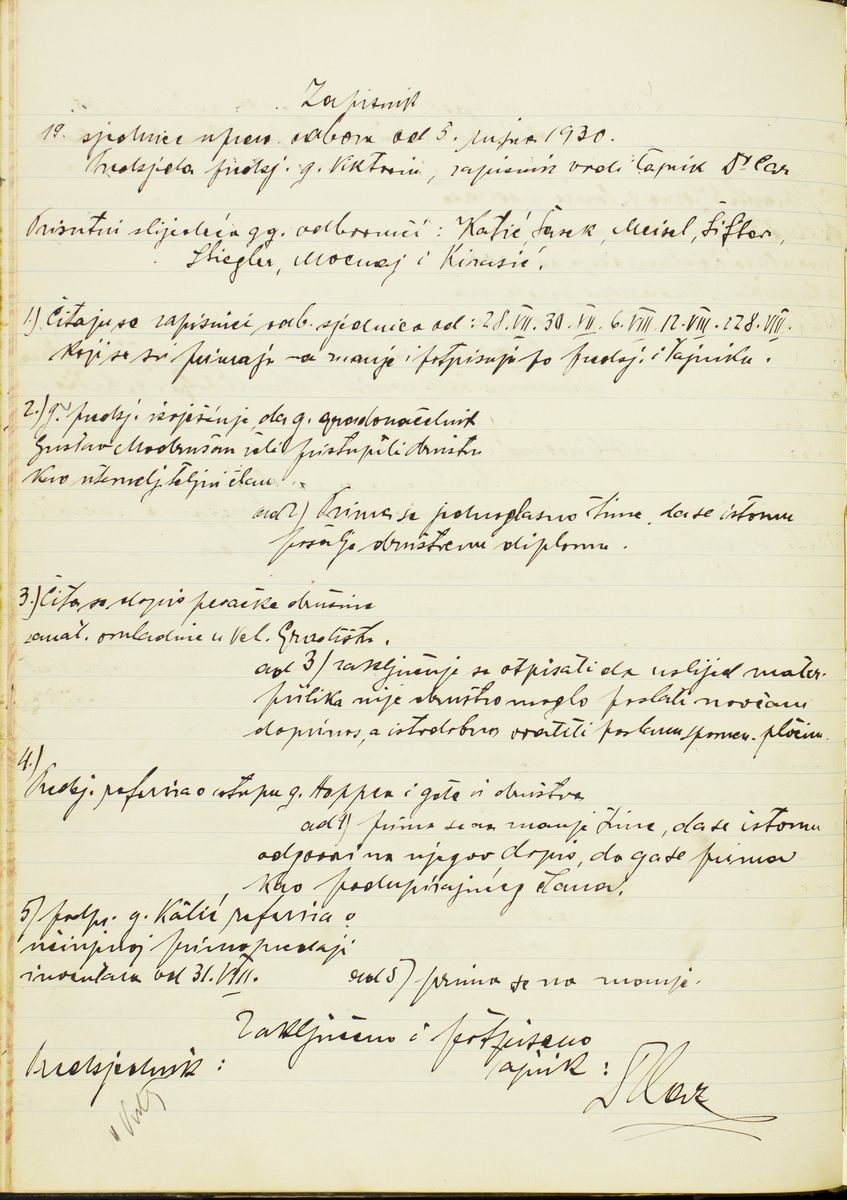 Zapisnik
19. sjednice uprav. odbora od 5. rujna 1930.
Predsjeda predsj. g. Viktorin, zapisnik vodi tajnik Dr Car
Prisutni slijedeća gg. odbornici: Katić, Šasek, Meisel, Šifter,
Stiegler, Mocnaj i Kirasić.
1.) Čitaju se zapisnici odb. sjednica od: 28.VII. 30.VII. 6.VIII. 12.VIII. i 28.VIII.
koji se svi primaju na znanje i potpisuju po predsj. i tajniku.
2.) g. predsj. izvješćuje, da g. gradonačelnik
Gustav Modrušan želi pristupiti društvu
kao utemeljiteljni član.
ad 2) Prima se jednoglasno time, da se istomu
pošalje društvenu diplomu.
3.) Čita se dopis pjevačke družine
zanat. omladine u Vel. Gradištu.
ad 3) zaključuje se otpisati da uslijed mater.
prilika nije društvo moglo poslati novčani
doprinos, a istodobno vratiti poslanu spomen. pločicu.
4.)
Predsj. referira o istupu g. Hoppea i gđe iz društva
ad 4) prima se na znanje time, da se istomu
odgovori na njegov dopis, da ga se prima
kao podupirajućeg člana.
5) podpr. g. Katić referira o
učinjenoj primopredaji
inventara od 31.VIII.
ad 5) prima se na znanje.
Zaključeno i potpisano
Predsjednik: tajnik:
Dr Car